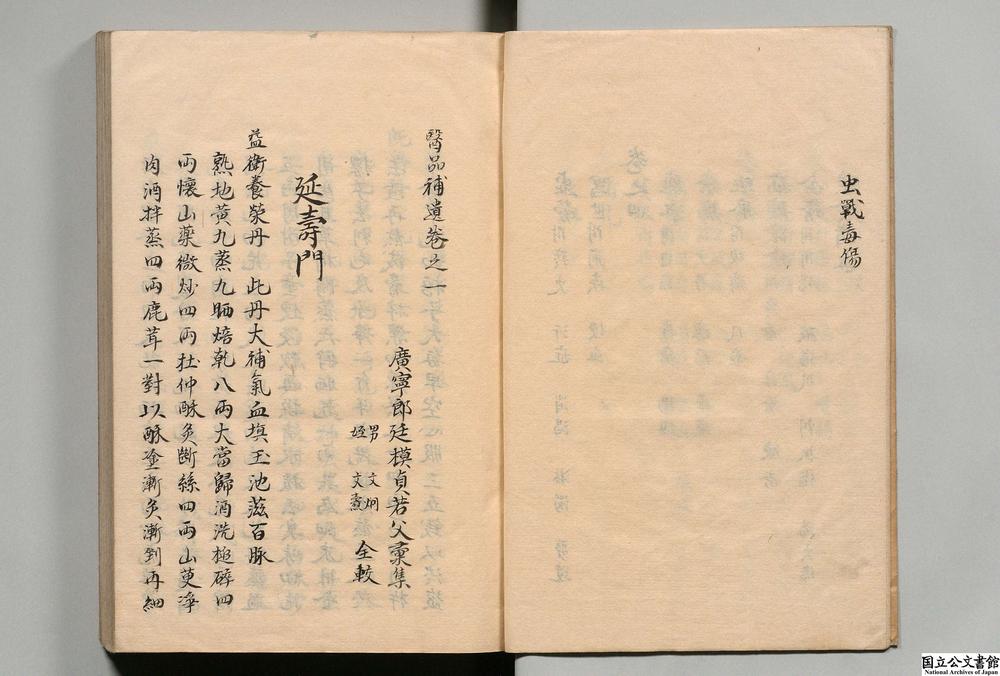 虫戰毒傷
醫品補遺卷之一
廣寧郎廷模貞若父彙集
男 文炯
姪 文燾
仝較
延壽門
益衛養榮丹 此丹大補氣血填玉池滋百脉
熟地黄九蒸九晒焙乾八兩大當歸酒洗搥碎四
兩懷山藥微炒四兩杜仲酥炙斷絲四兩山萸凈
肉酒拌蒸四兩鹿茸一對以酥塗漸炙漸剉再細
国立公文書館
National Archives of Japan